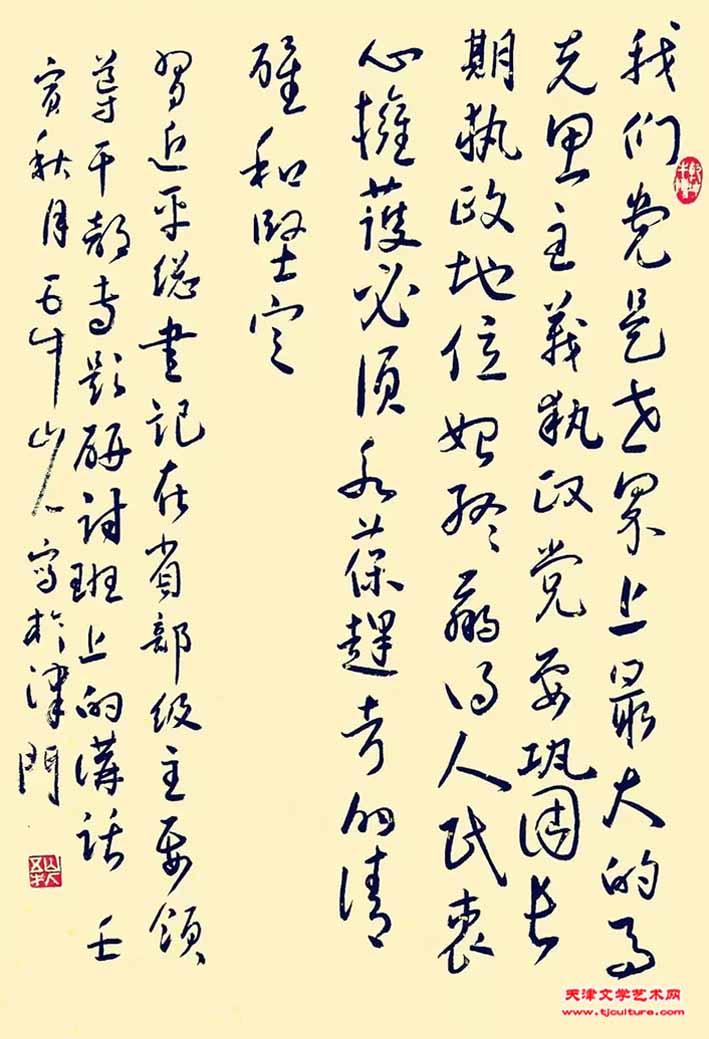 我们党是世界上最大的马
克思主義执政党要巩固长
期执政地位始终赢得人民衷
心擁護必须永葆趕考的清
醒和堅定
習近平總書記在省部级主要领
導干部专题研讨班上的講话 壬
寅秋月五牛山人寫於津門
天津文学艺术网
www.tjculture.com